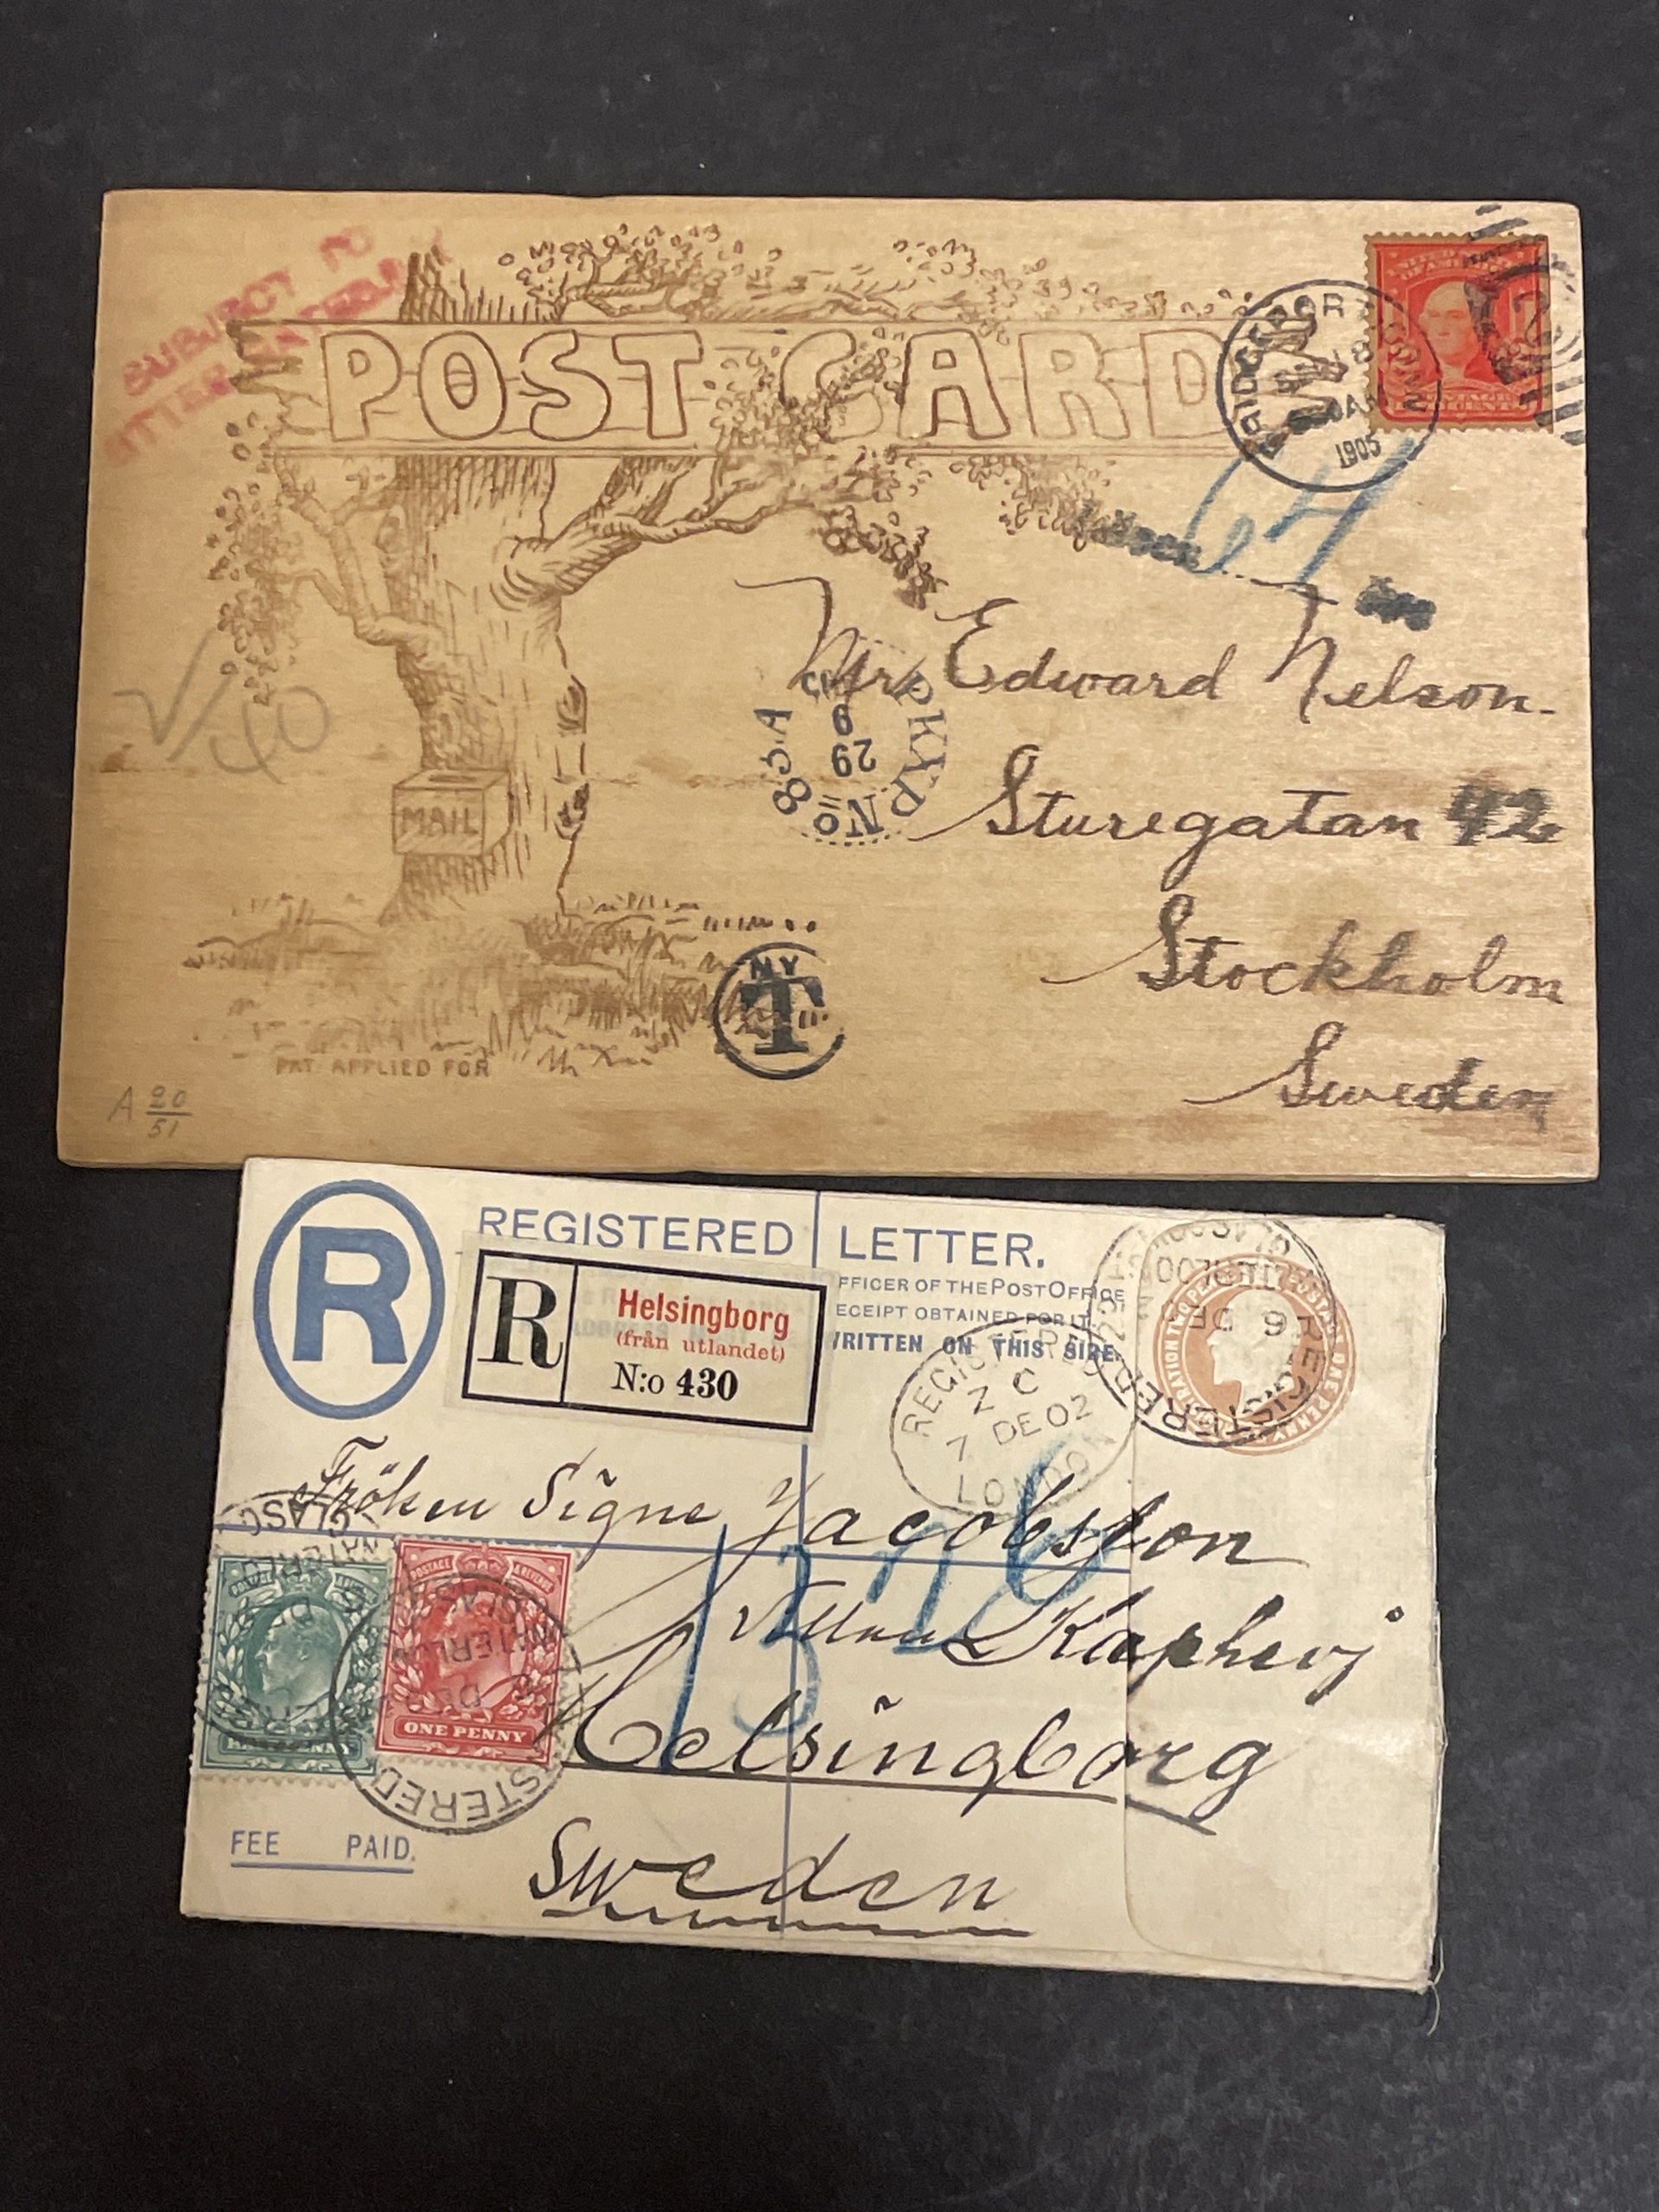 SUBJECT TO
LETTER
POST CARD
BRIDGEPORT CONN
1905
UNITED STATES
OF AMERICA
64
Mr Edward Nelson.
Sturegatan 42
Stockholm
Sweden
PKXP No 83 A
29
9
MAIL
NY
T
PAT. APPLIED FOR
A 20
51
R
REGISTERED LETTER.
R
Helsingborg
(från utlandet)
N:o 430
FFICER OF THE POST OFFICE
ECEIPT OBTAINED FOR IT.
WRITTEN ON THIS SIDE.
REGISTERED
Z C
7 DE 02
LONDON
REGISTERED
6 DE
Fröken Signe Jacobsson
Helsingborg
Sweden
POSTAGE & REVENUE
ONE PENNY
FEE PAID.